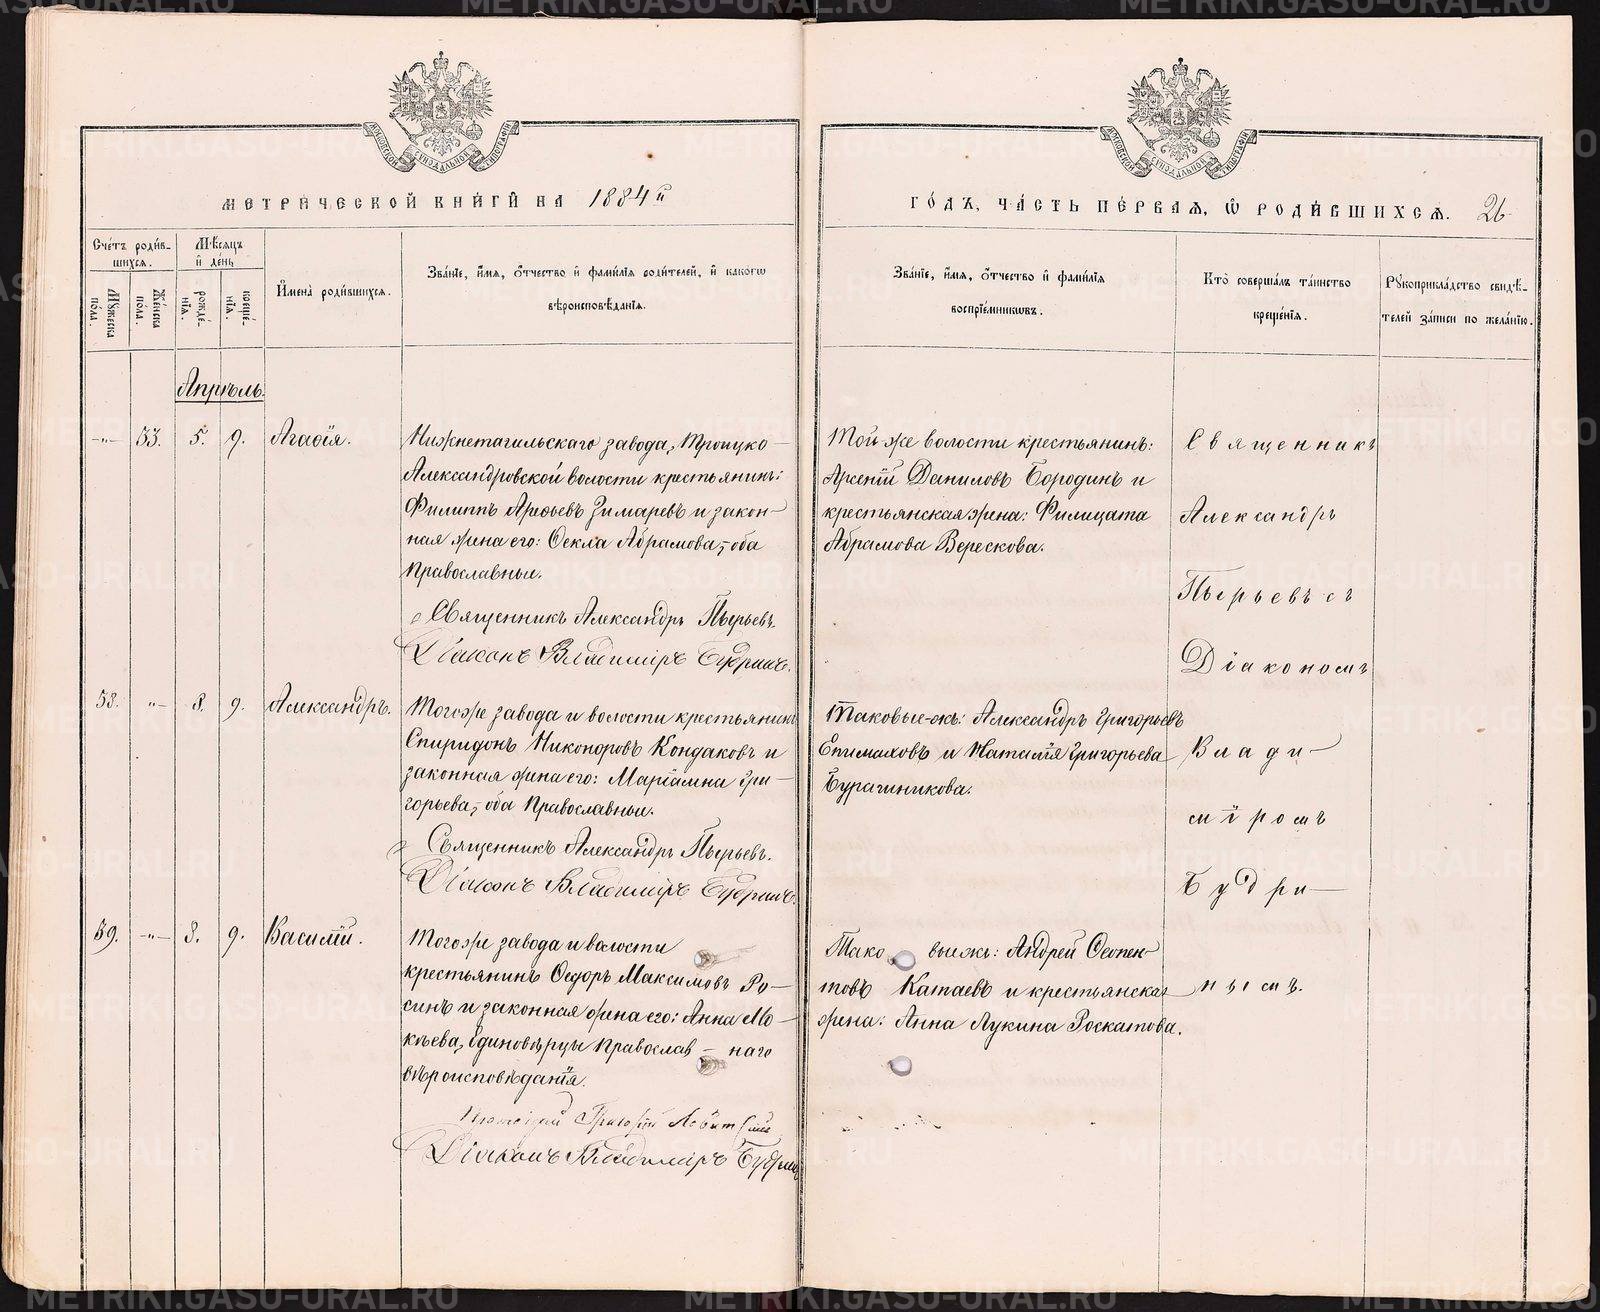 METRIKI.GASO-URAL.RU
МЕТРИЧЕСКОЙ КНИГИ НА 1884 й
ГОДЪ, ЧАСТЬ ПЕРВАЯ, Ѿ РОДИВШИХСЯ. 26
Счетъ родив-
шихся.
Мужеска пола.
Женска пола.
Мѣсяцъ и день
рожденія.
крещенія.
Имена родившихся.
Званіе, имя, отчество и фамилія родителей, и какогѡ
вѣроисповѣданія.
Званіе, имя, отчество и фамилія
воспріемниковъ.
Кто совершалъ таинство
крещенія.
Рукоприкладство свидѣ-
телей записи по желанію.
Апрѣль.
-"- 53. 5. 9. Агаѳія.
Нижнетагильскаго завода, Троицко-
Александровской волости крестьянинъ:
Филиппъ Ареѳьевъ Зимаревъ и закон-
ная жена его: Ѳекла Абрамова,-оба
православные.
Священникъ Александръ Пырьевъ.
Діаконъ Владиміръ Будринъ.
Той же волости крестьянинъ:
Арсеній Даниловъ Бородинъ и
крестьянская жена: Филицата
Абрамова Верескова.
Священникъ
Александръ
Пырьевъ съ
Діакономъ
58. -"- 8. 9. Александръ.
Тогоже завода и волости крестьянинъ
Спиридонъ Никоноровъ Кондаковъ и
законная жена его: Маріамна Гри-
горьева,-оба православные.
Священникъ Александръ Пырьевъ.
Діаконъ Владиміръ Будринъ.
Таковые-жъ: Александръ Григорьевъ
Епимаховъ и Наталія Григорьева
Бурашникова.
Влади-
міромъ
Будри-
59. -"- 8. 9. Василій.
Тогоже завода и волости
крестьянинъ Ѳедоръ Максимовъ Ро-
синъ и законная жена его: Анна Мо-
кѣева, Единовѣрцы православ-наго
вѣроисповѣданія.
Діаконъ Владиміръ Будринъ
Тако выежъ: Андрей Ѳеопен
товъ Катаевъ и крестьянская
жена: Анна Лукина Роскатова.
нымъ.